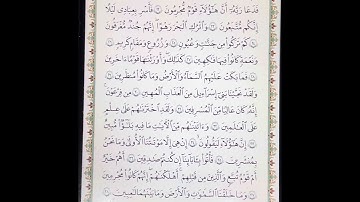 فَدَعَا رَبَّهُۥٓ أَنَّ هَٰٓؤُلَآءِ قَوْمٌ مُّجْرِمُونَ ٢٢ فَأَسْرِ بِعِبَادِى لَيْلًا
إِنَّكُم مُّتَّبَعُونَ ٢٣ وَٱتْرُكِ ٱلْبَحْرَ رَهْوًا إِنَّهُمْ جُندٌ مُّغْرَقُونَ ٢٤
كَمْ تَرَكُوا۟ مِن جَنَّٰتٍ وَعُيُونٍ ٢٥ وَزُرُوعٍ وَمَقَامٍ كَرِيمٍ ٢٦
وَنَعْمَةٍ كَانُوا۟ فِيهَا فَٰكِهِينَ ٢٧ كَذَٰلِكَ وَأَوْرَثْنَٰهَا قَوْمًا ءَاخَرِينَ ٢٨
فَمَا بَكَتْ عَلَيْهِمُ ٱلسَّمَآءُ وَٱلْأَرْضُ وَمَا كَانُوا۟ مُنظَرِينَ ٢٩
وَلَقَدْ نَجَّيْنَا بَنِىٓ إِسْرَٰٓءِيلَ مِنَ ٱلْعَذَابِ ٱلْمُهِينِ ٣٠ مِن فِرْعَوْنَ
إِنَّهُۥ كَانَ عَالِيًا مِّنَ ٱلْمُسْرِفِينَ ٣١ وَلَقَدِ ٱخْتَرْنَٰهُمْ عَلَىٰ عِلْمٍ
عَلَى ٱلْعَٰلَمِينَ ٣٢ وَءَاتَيْنَٰهُم مِّنَ ٱلْءَايَٰتِ مَا فِيهِ بَلَٰٓؤٌا۟ مُّبِينٌ ٣٣
إِنَّ هَٰٓؤُلَآءِ لَيَقُولُونَ ٣٤ إِنْ هِىَ إِلَّا مَوْتَتُنَا ٱلْأُولَىٰ وَمَا نَحْنُ
بِمُنشَرِينَ ٣٥ فَأْتُوا۟ بِـَٔابَآئِنَآ إِن كُنتُمْ صَٰدِقِينَ ٣٦ أَهُمْ خَيْرٌ
أَمْ قَوْمُ تُبَّعٍ وَٱلَّذِينَ مِن قَبْلِهِمْ أَهْلَكْنَٰهُمْ إِنَّهُمْ كَانُوا۟ مُجْرِمِينَ ٣٧
وَمَا خَلَقْنَا ٱلسَّمَٰوَٰتِ وَٱلْأَرْضَ وَمَا بَيْنَهُمَا لَٰعِبِينَ ٣٨